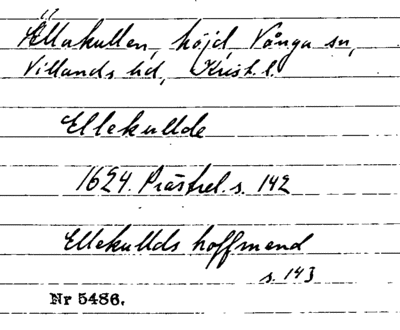 Ällakullen, höjd, Vånga sn,
Villands hd, Krist. l.
Ellekullde
1624. Prästrel. s. 142
Ellekullds hoffmend
s. 143
Nr 5486.